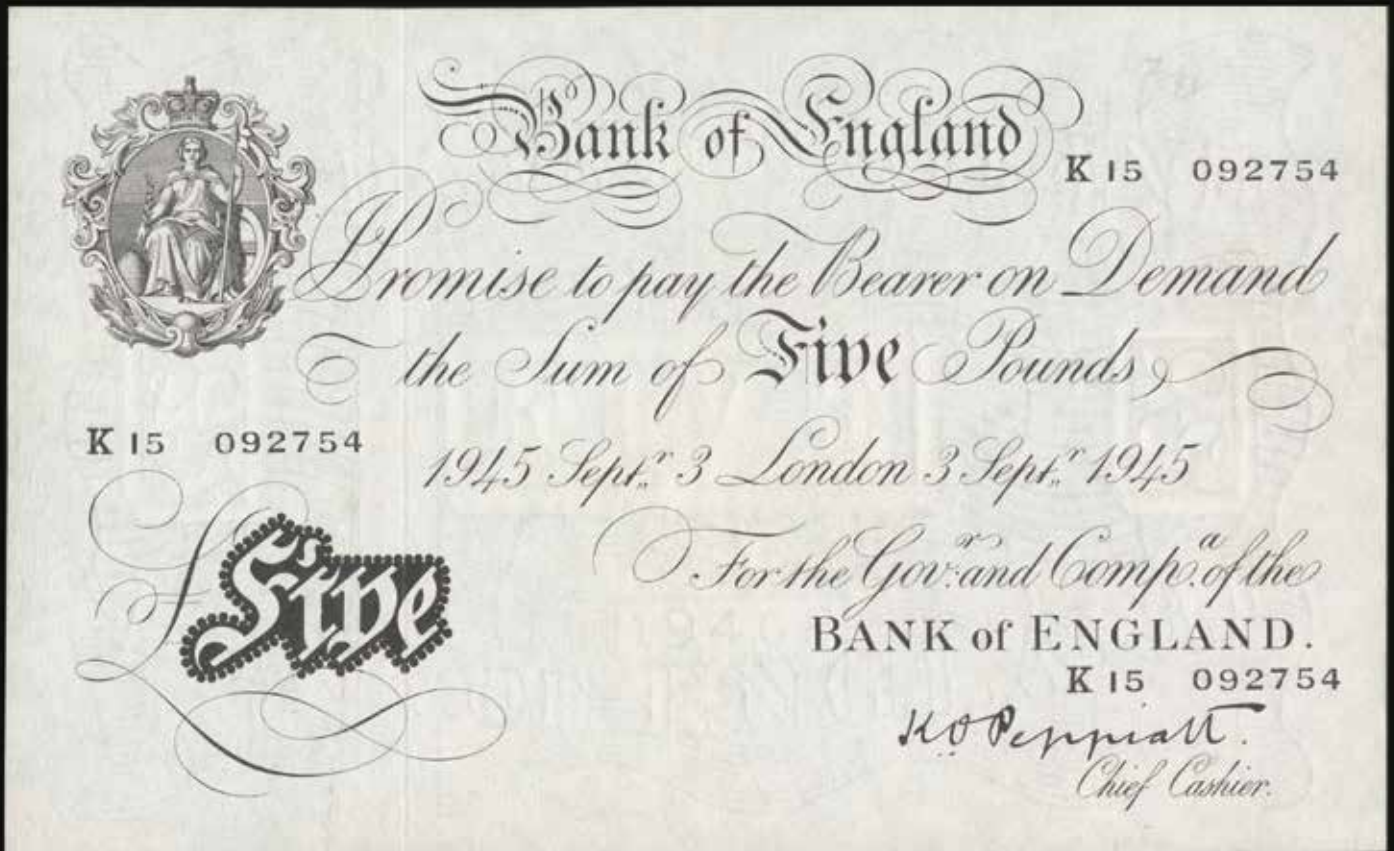 Bank of England
K 15 092754
I Promise to pay the Bearer on Demand
the Sum of Five Pounds
K 15 092754
1945 Septr. 3 London 3 Septr. 1945
For the Govr. and Compa. of the
£Five
BANK of ENGLAND.
K 15 092754
K O Peppiatt.
Chief Cashier.